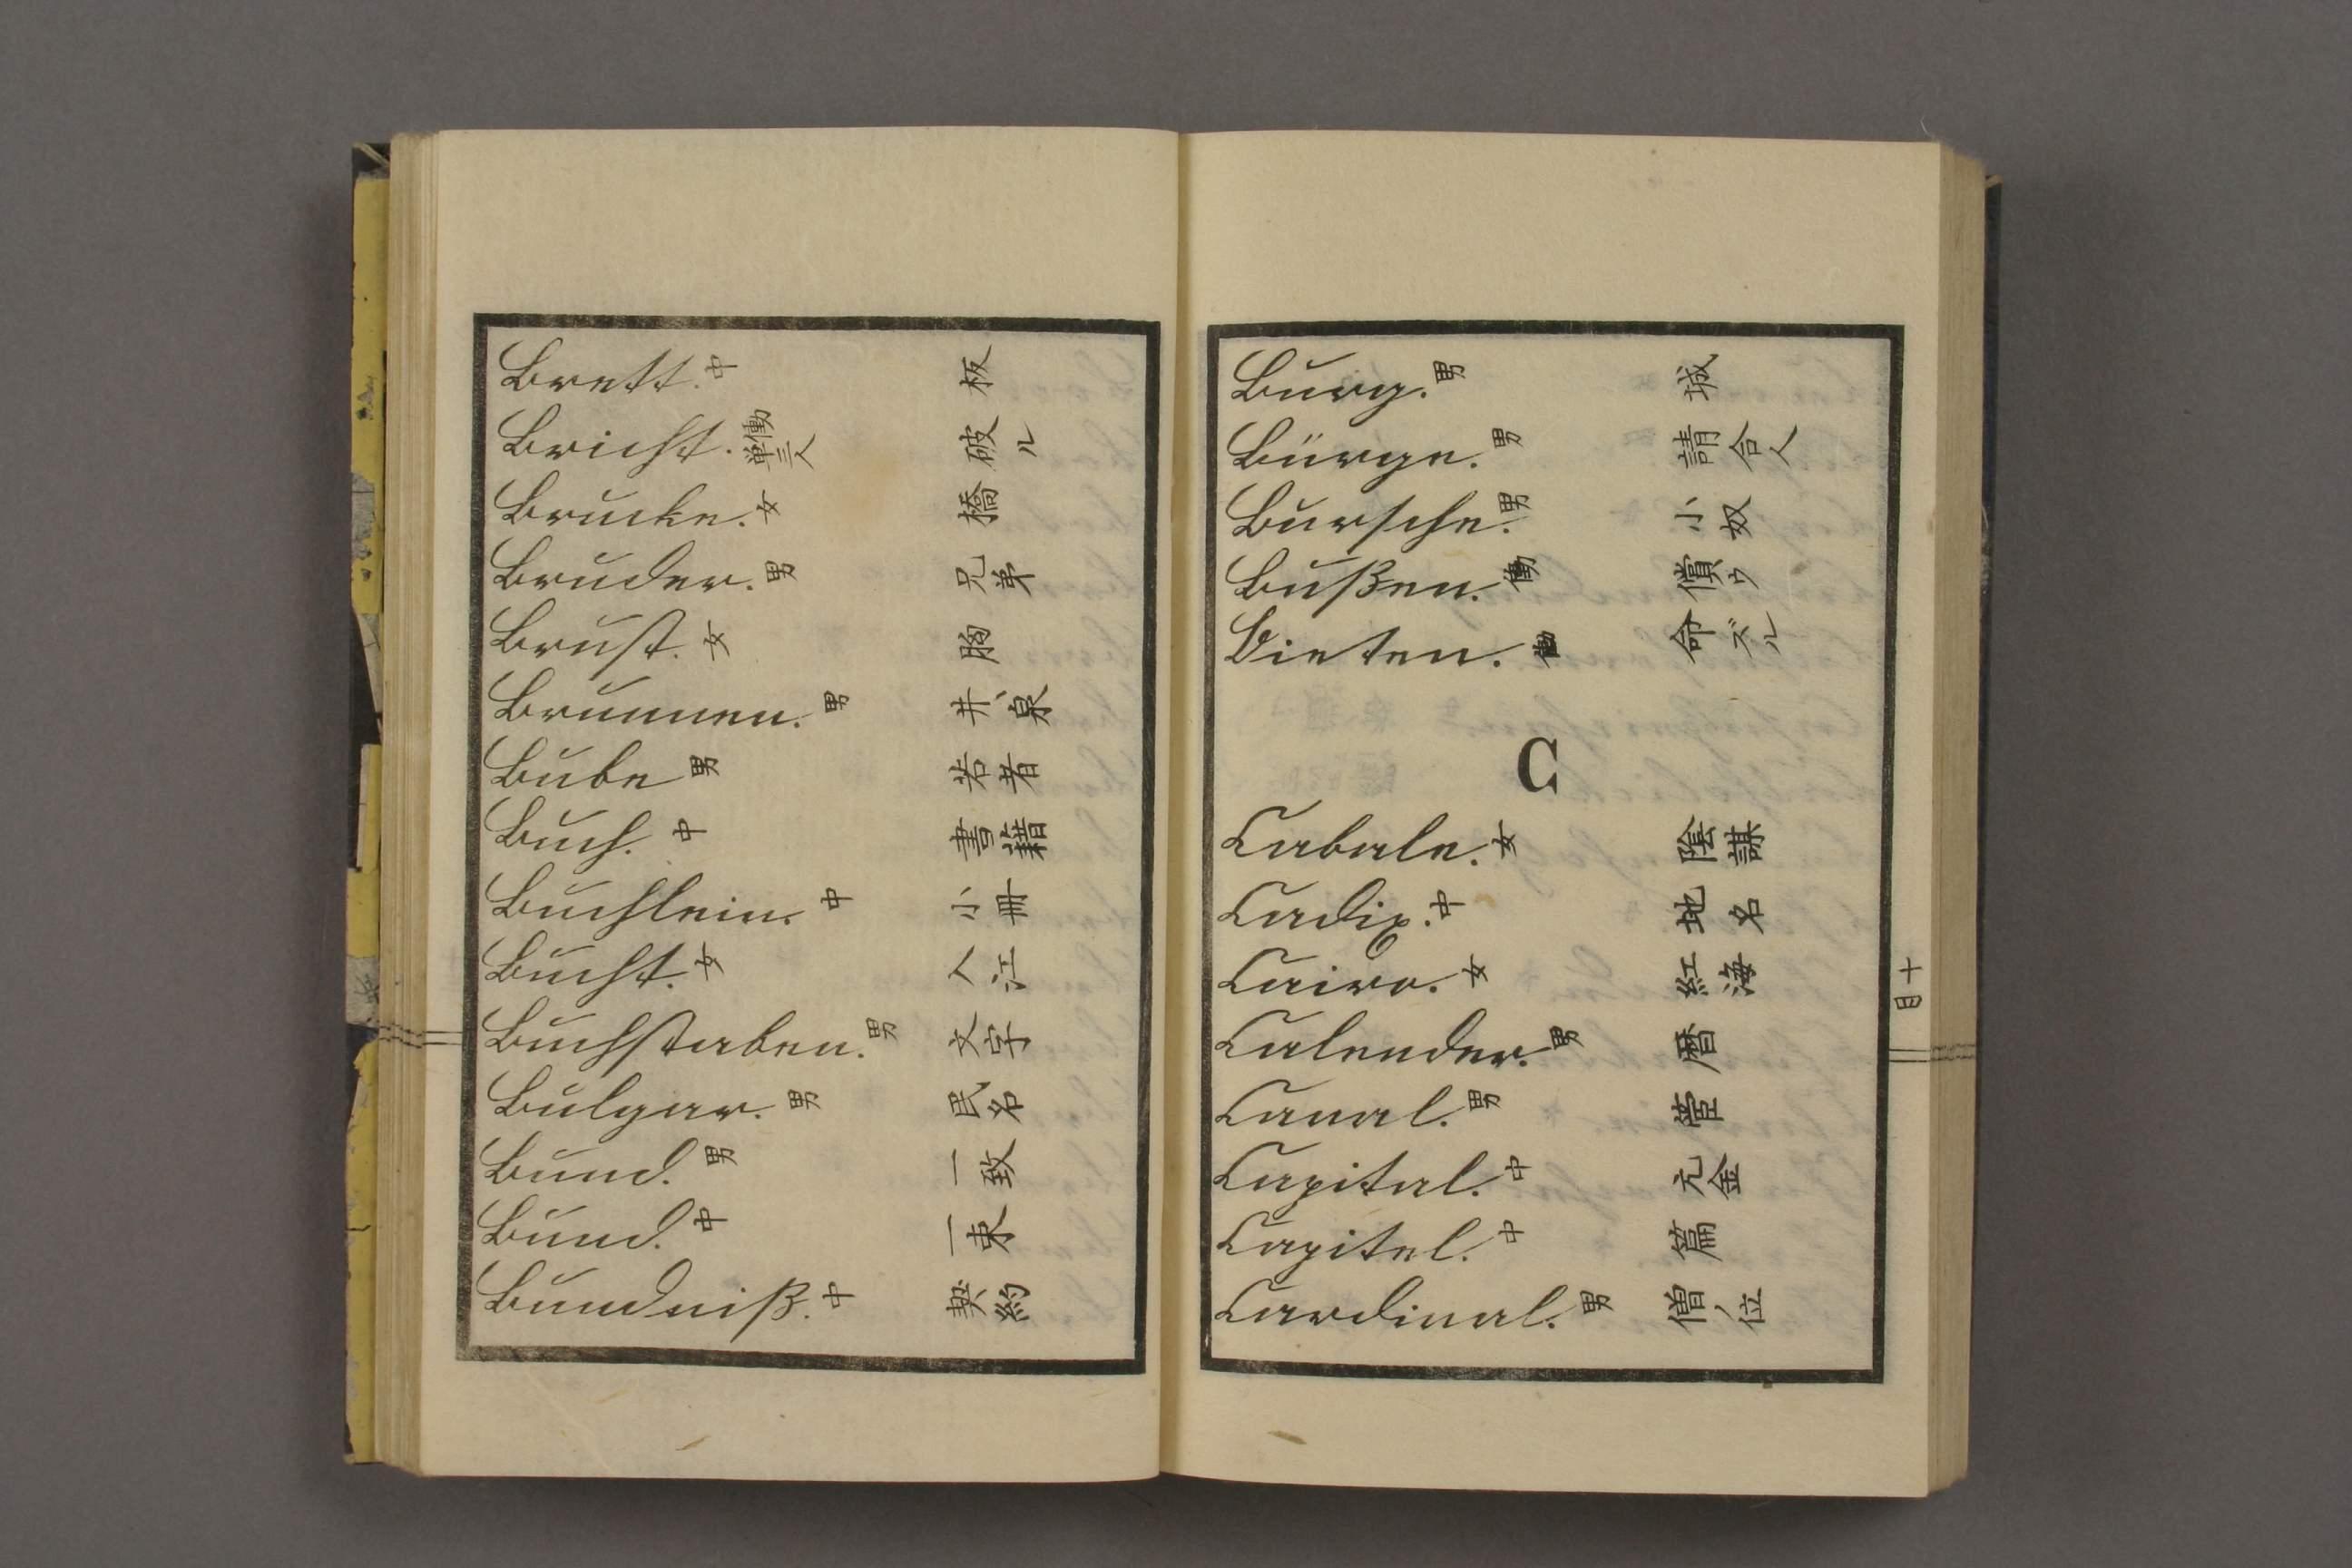 Brett. 中 板
Bricht. 働単三人 破ル
Brucke. 女 橋
Bruder. 男 兄弟
Brust. 女 胸
Brunnen. 男 井、泉
Bube 男 若者
Buch. 中 書籍
Buchlein. 中 小冊
Bucht. 女 入江
Buchstaben. 男 文字
Bulgar. 男 民名
Bund. 男 一致
Bund. 中 一束
Bundniß. 中 契約
Burg. 男 城
Bürge. 男 請合人
Bursche. 男 小奴
Bußen. 働 償ウ
Bieten. 働 命ズル
C
Cabale. 女 陰謀
Cadix. 中 地名
Cairo. 女 紅海
Calender. 男 暦
Canal. 男
Capital. 中 元金
Capitel. 中 篇
Cardinal. 男 僧ノ位
十